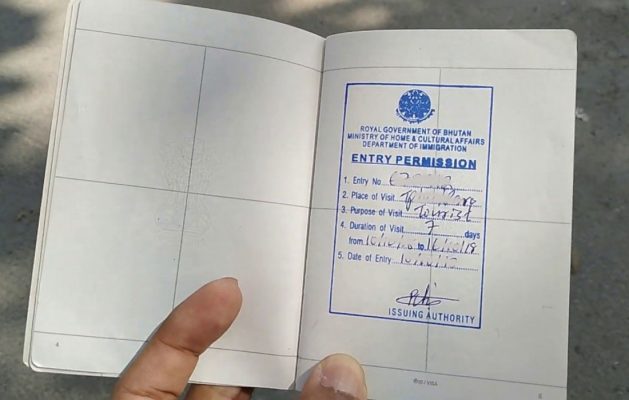 ROYAL GOVERNMENT OF BHUTAN
MINISTRY OF HOME & CULTURAL AFFAIRS
DEPARTMENT OF IMMIGRATION
ENTRY PERMISSION
1. Entry No
2. Place of Visit
3. Purpose of Visit Tourist
4. Duration of Visit 7 days
from to 16/10/18
5. Date of Entry
ISSUING AUTHORITY
4
VISA